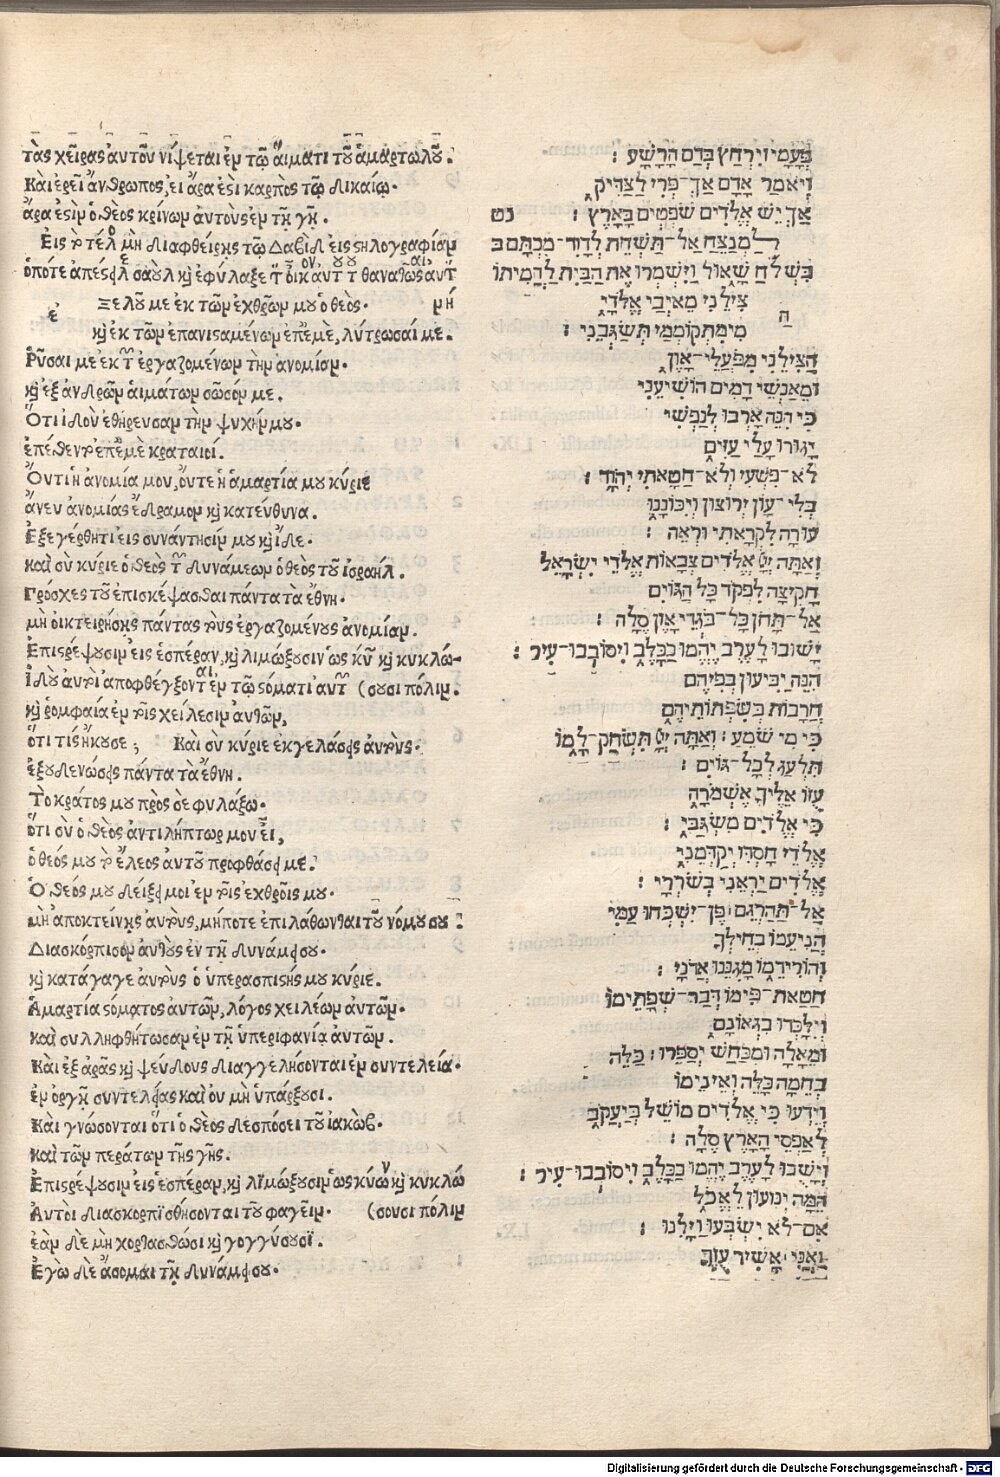 τὰς χεῖρας ἀυτοῦ νίψεται ἐν τῷ ἅιματι τοῦ ἁμαρτωλοῦ.
Καὶ ἐρεῖ ἄνθρωπος, ει ἄρα ἐστὶ καρπὸς τῷ δικαίῳ.
ἄρα ἐστὶν ὁ θεὸς κρίνων ἀυτοὺς ἐν τῇ γῇ.
Εις τὸ τέλος μὴ διαφθείρῃς τῷ Δαβὶδ εις στηλογραφίαν
ὁπότε ἀπέστειλε σαοὺλ καὶ ἐφύλαξε τὸν οἶκον αὐτοῦ τοῦ θανατῶσαι αὐτὸν
Εξελοῦ με ἐκ τῶν ἐχθρῶν μου ὁ θεὸς.
καὶ ἐκ τῶν ἐπανισταμένων ἐπ' ἐμὲ, λύτρωσαί με.
Ρῦσαί με ἐκ τῶν ἐργαζομένων τὴν ἀνομίαν.
καὶ ἐξ ἀνδρῶν ἁιμάτων σῶσόν με.
Ὅτι ἰδοὺ ἐθήρευσαν τὴν ψυχήν μου.
ἐπέθεντο ἐπ' ἐμὲ κραταιοί.
Ὄυτι ἡ ἀνομία μου, ὄυτε ἡ ἁμαρτία μου κύριε
ἄνευ ἀνομίας ἔδραμον καὶ κατέυθυνα.
Εξεγέρθητι εις συνάντησίν μου καὶ ἴδε.
καὶ συ κύριε ὁ θεὸς τῶν δυνάμεων ὁ θεὸς τοῦ ἰσραὴλ.
Πρόσχες τοῦ ἐπισκέψασθαι πάντα τὰ ἔθνη.
μὴ ὀικτειρήσῃς πάντας τοὺς ἐργαζομένους ἀνομίαν.
Επιστρέψουσιν εις ἑσπέραν, καὶ λιμώξουσιν ὡς κύων καὶ κυκλώ-
Ιδοὺ ἀυτοὶ ἀποφθέγξονται ἐν τῷ στόματι αὐτῶν (σουσι πόλιν.
καὶ ῥομφαία ἐν τοῖς χείλεσιν ἀυτῶν,
ὅτι τίς ἤκουσε; Καὶ σὺ κύριε ἐκγελάσεις ἀυτοὺς.
ἐξουδενώσεις πάντα τὰ ἔθνη.
Τὸ κράτος μου πρὸς σὲ φυλάξω.
ὅτι σὺ ὁ θεὸς ἀντιλήπτωρ μου εἶ,
ὁ θεός μου τὸ ἔλεος ἀυτοῦ προφθάσει με.
Ὁ θεός μου δείξει μοι ἐν τοῖς ἐχθροῖς μου.
μὴ ἀποκτείνῃς ἀυτοὺς, μήποτε ἐπιλάθωνται τοῦ νόμου σου:
Διασκόρπισον ἀυτοὺς ἐν τῇ δυνάμει σου.
καὶ κατάγαγε ἀυτοὺς ὁ ὑπερασπιστής μου κύριε.
Ἁμαρτία στόματος ἀυτῶν, λόγος χειλέων ἀυτῶν.
καὶ συλληφθήτωσαν ἐν τῇ ὑπεριφανίᾳ ἀυτῶν.
Καὶ ἐξ ἀρᾶς καὶ ψεύδους διαγγελήσονται ἐν συντελεία.
ἐν ὀργῇ συντελείας καὶ ου μὴ ὑπάρξουσι.
Καὶ γνώσονται ὅτι ὁ θεὸς δεσπόσει τοῦ ιακὼβ.
καὶ τῶν περάτων τῆς γῆς.
Επιστρέψουσιν εις ἑσπέραν, καὶ λιμώξουσιν ὡς κύων καὶ κυκλώ
Ἀυτοὶ διασκορπισθήσονται τοῦ φαγεῖν. (σουσι πόλιν
ἐὰν δὲ μὴ χορτασθῶσι καὶ γογγύσουσι.
Ἐγὼ δὲ ἄσομαι τῇ δυνάμει σου.
פְּעָמָיו יִרְחַץ בְּדַם הָרָשָׁע :
וְיֹאמַר אָדָם אַךְ־פְּרִי לַצַּדִּיק
אַךְ יֵשׁ אֱלֹדִים שֹׁפְטִים בָּאָרֶץ : נט
לַמְנַצֵחַ אַל־תַּשְׁחֵת לְדָוִד מִכְתָּם ב
בִּשְׁלֹחַ שָׁאוּל וַיִּשְׁמְרוּ אֶת הַבַּיִת לַהֲמִיתוֹ
צִילֵנִי מֵאֹיְבַי אֱלֹדָי
ה
מִמִּתְקוֹמְמַי תְּשַׂגְּבֵנִי :
הַצִּילֵנִי מִפֹּעֲלֵי אָוֶן
וּמֵאַנְשֵׁי דָמִים הוֹשִׁיעֵנִי
כִּי הִנֵּה אָרְבוּ לְנַפְשִׁי
יָגוּרוּ עָלַי עַזִּים
לֹא־פִשְׁעִי וְלֹא־חַטָּאתִי יְהֹוָד :
בְּלִי־עָוֹן יְרוּצוּן וְיִכּוֹנָנוּ
עוּרָה לִקְרָאתִי וּרְאֵה :
וְאַתָּה יְיָ אֱלֹדִים צְבָאוֹת אֱלֹדֵי יִשְׂרָאֵל
הָקִיצָה לִפְקֹד כָּל הַגּוֹיִם
אַל־תָּחֹן כָּל־בֹּגְדֵי אָוֶן סֶלָה :
יָשׁוּבוּ לָעֶרֶב יֶהֱמוּ כַכָּלֶב וִיסוֹבְבוּ־עִיר :
הִנֵּה יַבִּיעוּן בְּפִיהֶם
חֲרָבוֹת בְּשִׂפְתוֹתֵיהֶם
כִּי מִי שֹׁמֵעַ : וְאַתָּה יְיָ תִּשְׂחַק־לָמוֹ
תִּלְעַג לְכָל־גּוֹיִם :
עֻזּוֹ אֵלֶיךָ אֶשְׁמֹרָה
כִּי אֱלֹדִים מִשְׂגַּבִּי :
אֱלֹדֵי חַסְדּוֹ יְקַדְּמֵנִי
אֱלֹדִים יַרְאֵנִי בְשֹׁרְרָי :
אַל־תַּהַרְגֵם פֶּן־יִשְׁכְּחוּ עַמִּי
הֲנִיעֵמוֹ בְחֵילְךָ
וְהוֹרִידֵמוֹ מָגִנֵּנוּ אֲדֹנָי :
חַטַּאת־פִּימוֹ דְּבַר־שְׂפָתֵימוֹ
וְיִלָּכְדוּ בִגְאוֹנָם
וּמֵאָלָה וּמִכַּחַשׁ יְסַפֵּרוּ : כַּלֵּה
בְחֵמָה כַּלֵּה וְאֵינֵימוֹ
וְיֵדְעוּ כִּי אֱלֹדִים מוֹשֵׁל בְּיַעֲקֹב
לְאַפְסֵי הָאָרֶץ סֶלָה :
וְיָשֻׁבוּ לָעֶרֶב יֶהֱמוּ כַכָּלֶב וִיסוֹבְבוּ־עִיר :
הֵמָּה יְנוּעוּן לֶאֱכֹל
אִם־לֹא יִשְׂבְּעוּ וַיָּלִינוּ :
וַאֲנִי אָשִׁיר עֻזֶּךָ
Digitalisierung gefördert durch die Deutsche Forschungsgemeinschaft - DFG